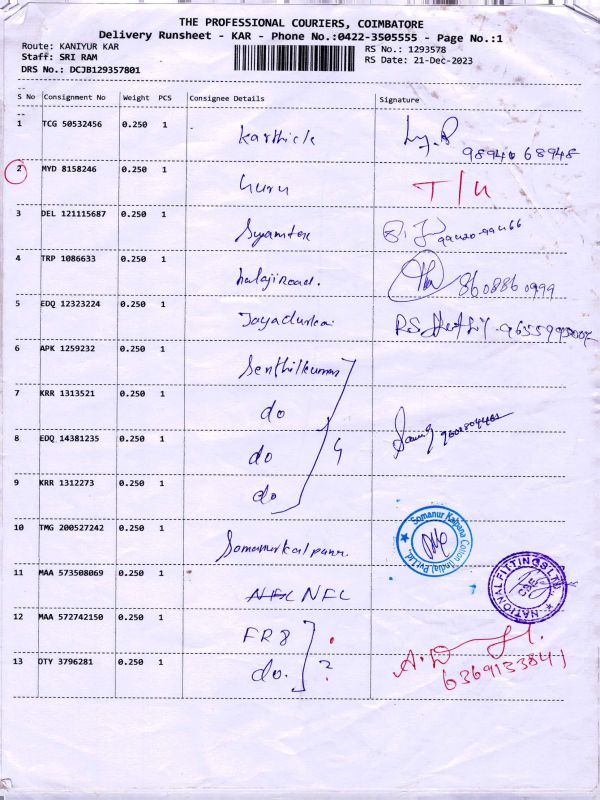 THE PROFESSIONAL COURIERS, COIMBATORE
Delivery Runsheet - KAR - Phone No.:0422-3505555 - Page No.:1
Route: KANIYUR KAR
RS No.: 1293578
Staff: SRI RAM
RS Date: 21-Dec-2023
DRS No.: DCJB129357801
S No Consignment No Weight PCS Consignee Details Signature
1 TCG 50532456 0.250 1 Karthick 98940 68948
2 MYD 8158246 0.250 1 Guru T/U
3 DEL 121115687 0.250 1
4 TRP 1086633 0.250 1 balajiroad. 8608860999
5 EDQ 12323224 0.250 1
6 APK 1259232 0.250 1 Senthilkumar
7 KRR 1313521 0.250 1 do
8 EDQ 14381235 0.250 1 do 4
9 KRR 1312273 0.250 1 do
10 TMG 200527242 0.250 1 Somanur Somanur Kalpana Cotton (India) Pvt Ltd.
11 MAA 573508069 0.250 1 NFL NFL NATIONAL FITTINGS LTD CBE
12 MAA 572742150 0.250 1 FR8
13 DTY 3796281 0.250 1 do. 2 6369133841